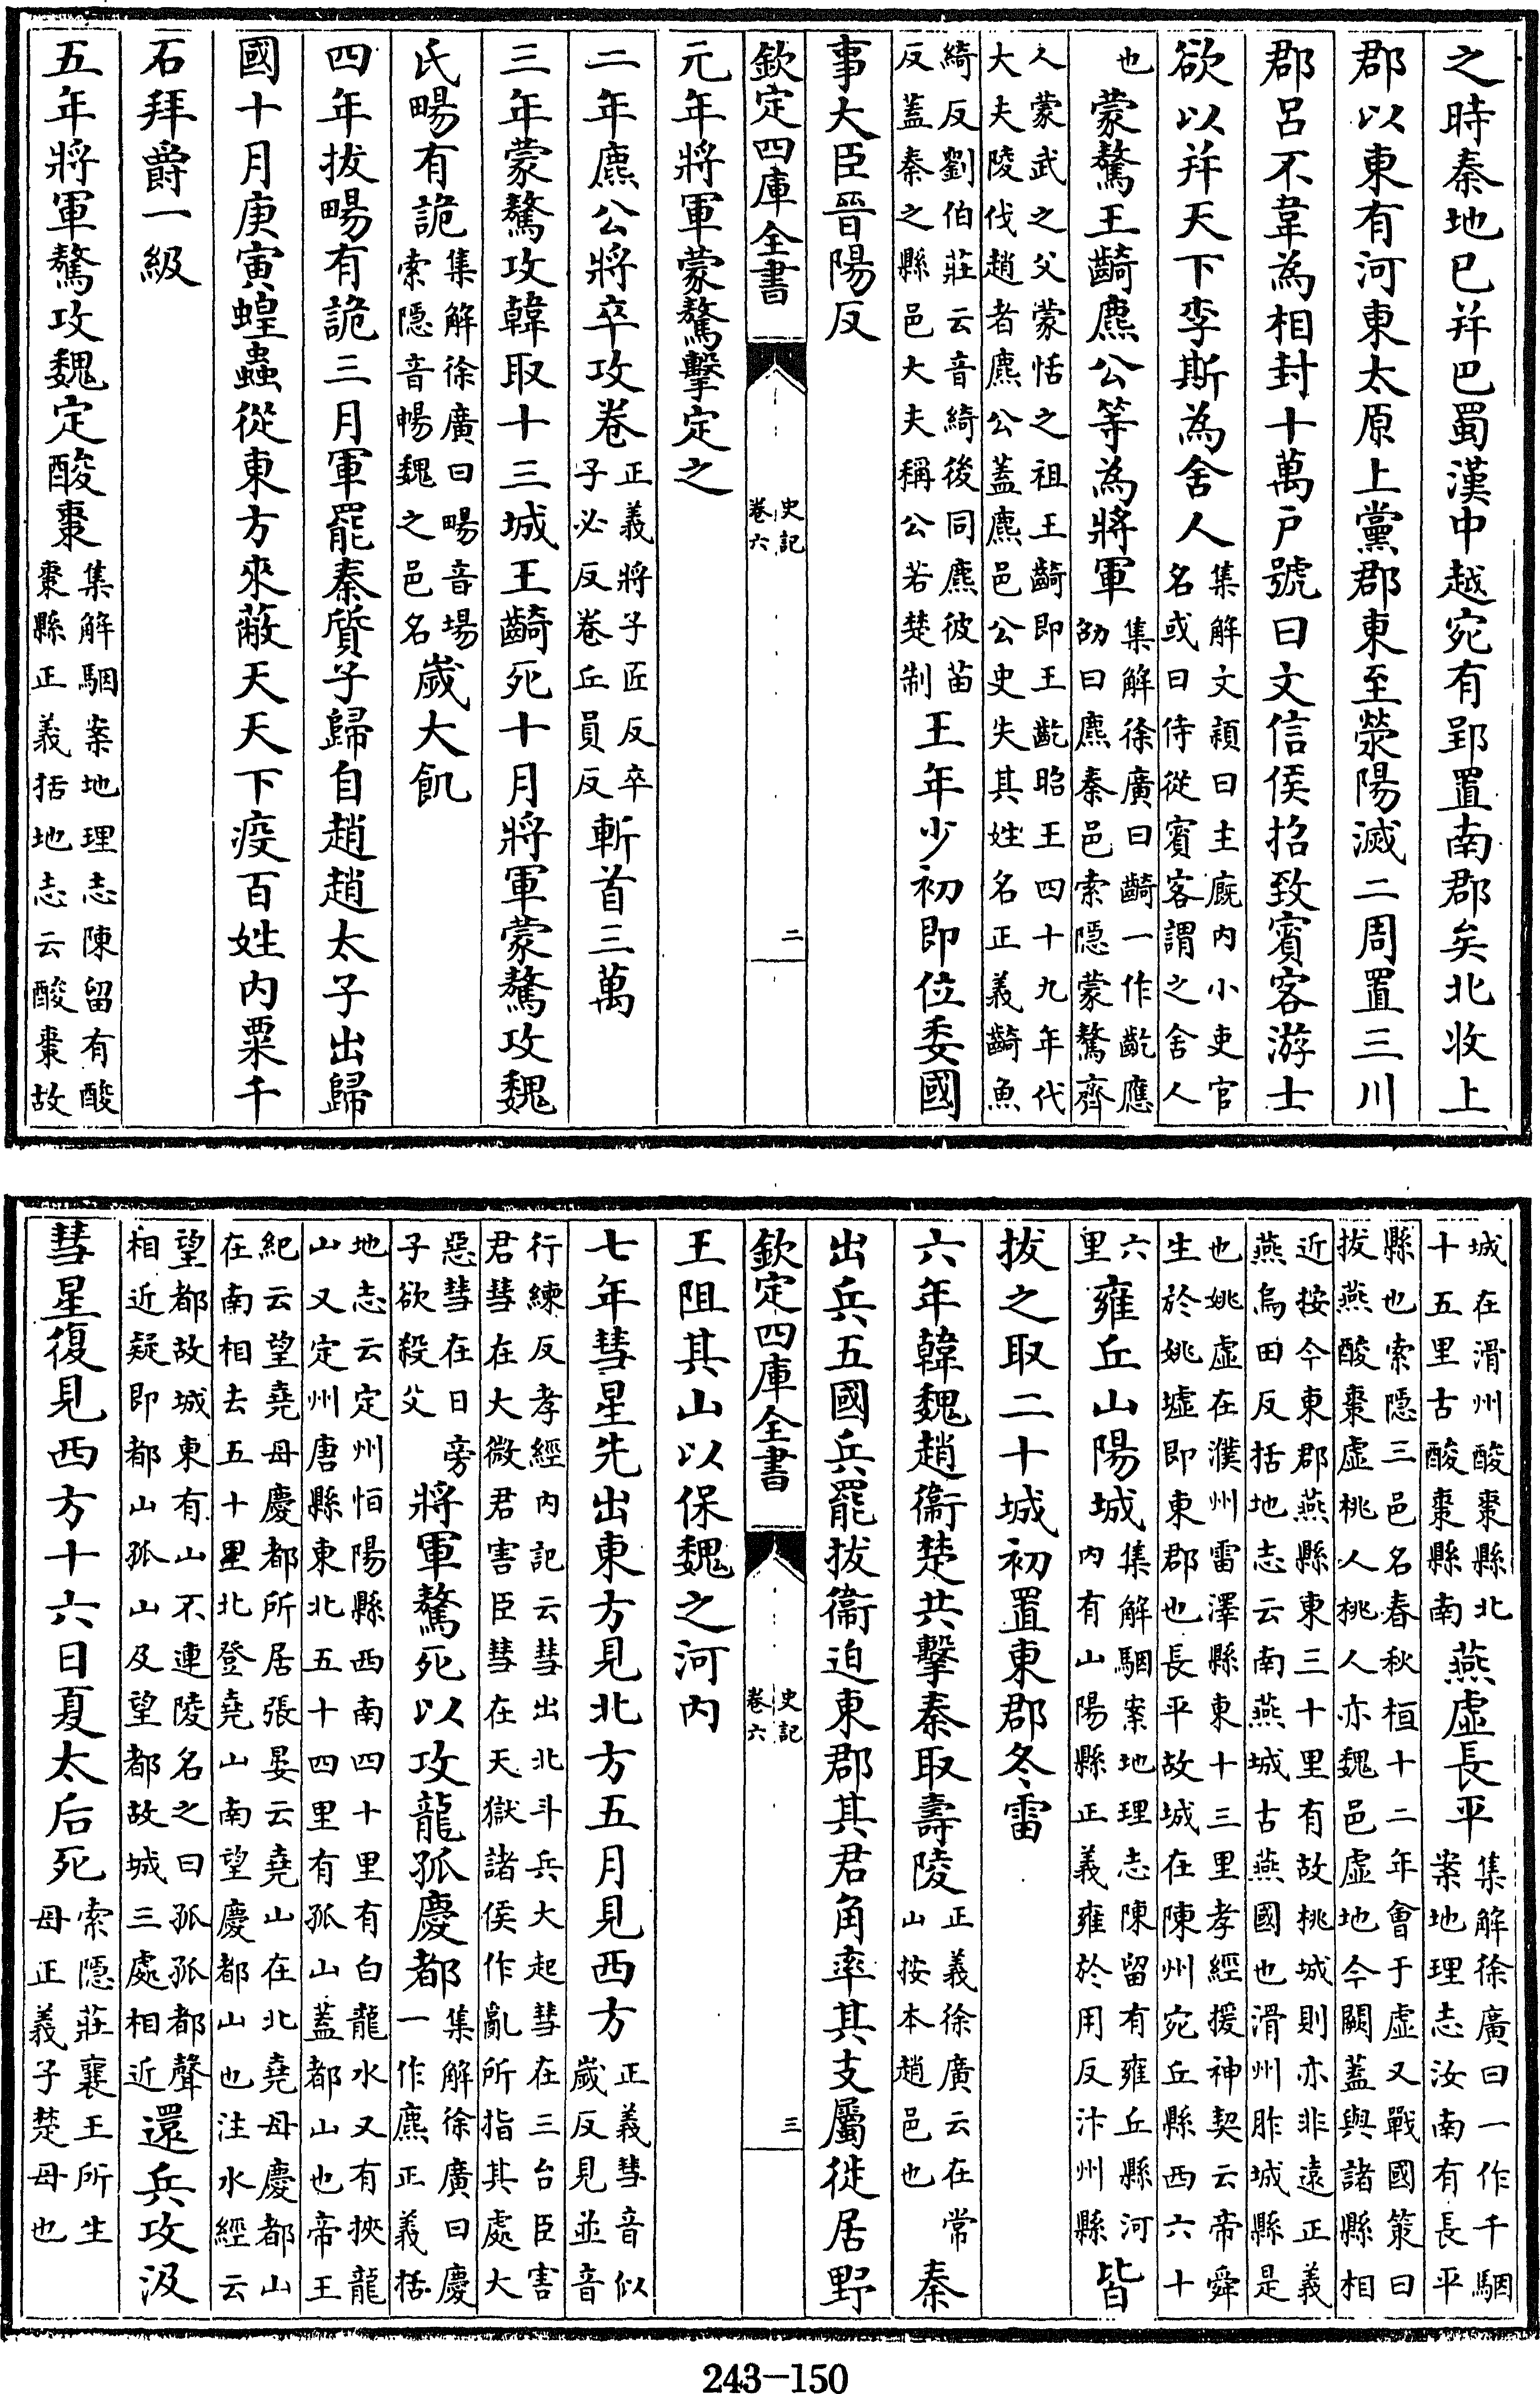 之時秦地已并巴蜀漢中越宛有郢置南郡矣北收上
郡以東有河東太原上黨郡東至滎陽滅二周置三川
郡呂不韋為相封十萬戶號曰文信侯招致賓客游士
欲以并天下李斯為舍人集解文穎曰主廄内小吏官名或曰侍從賓客謂之舍人
也蒙驁王齮麃公等為將軍集解徐廣曰齮一作齕應劭曰麃秦邑索隱蒙驁齊
人蒙武之父蒙恬之祖王齮即王齕昭王四十九年代大夫陵伐趙者麃公蓋麃邑公史失其姓名正義齮魚
綺反劉伯莊云音綺後同麃彼苗反蓋秦之縣邑大夫稱公若楚制王年少初即位委國
事大臣晉陽反
欽定四庫全書 史記卷六 二
元年將軍蒙驁擊定之
二年麃公將卒攻卷正義將子匠反卒子必反卷丘員反斬首三萬
三年蒙驁攻韓取十三城王齮死十月將軍蒙驁攻魏
氏畼有詭集解徐廣曰畼音場索隱音暢魏之邑名歲大飢
四年拔畼有詭三月軍罷秦質子歸自趙趙太子出歸
國十月庚寅蝗蟲從東方來蔽天天下疫百姓内粟千
石拜爵一級
五年將軍驁攻魏定酸棗集解駰案地理志陳留有酸棗縣正義括地志云酸棗故
城在滑州酸棗縣北十五里古酸棗縣南燕虛長平集解徐廣曰一作千駰案地理志汝南有長平
縣也索隱三邑名春秋桓十二年會于虛又戰國策曰拔燕酸棗虛桃人桃人亦魏邑虛地今闕蓋與諸縣相
近按今東郡燕縣東三十里有故桃城則亦非遠正義燕烏田反括地志云南燕城古燕國也滑州胙城縣是
也姚虛在濮州雷澤縣東十三里孝經援神契云帝舜生於姚墟即東郡也長平故城在陳州宛丘縣西六十
六里雍丘山陽城集解駰案地理志陳留有雍丘縣河内有山陽縣正義雍於用反汴州縣皆
拔之取二十城初置東郡冬雷
六年韓魏趙衞楚共擊秦取壽陵正義徐廣云在常山按本趙邑也秦
出兵五國兵罷拔衞迫東郡其君角率其支屬徙居野
欽定四庫全書 史記卷六 三
王阻其山以保魏之河内
七年彗星先出東方見北方五月見西方正義彗音似歲反見並音
行練反孝經内記云彗出北斗兵大起彗在三台臣害君彗在大微君害臣彗在天獄諸侯作亂所指其處大
惡彗在日旁子欲殺父將軍驁死以攻龍孤慶都集解徐廣曰慶一作麃正義括
地志云定州恒陽縣西南四十里有白龍水又有挾龍山又定州唐縣東北五十四里有孤山蓋都山也帝王
紀云望堯母慶都所居張晏云堯山在北堯母慶都山在南相去五十里北登堯山南望慶都山也注水經云
望都故城東有山不連陵名之曰孤孤都聲相近疑即都山孤山及望都故城三處相近還兵攻汲
彗星復見西方十六日夏太后死索隱莊襄王所生母正義子楚母也
243-150